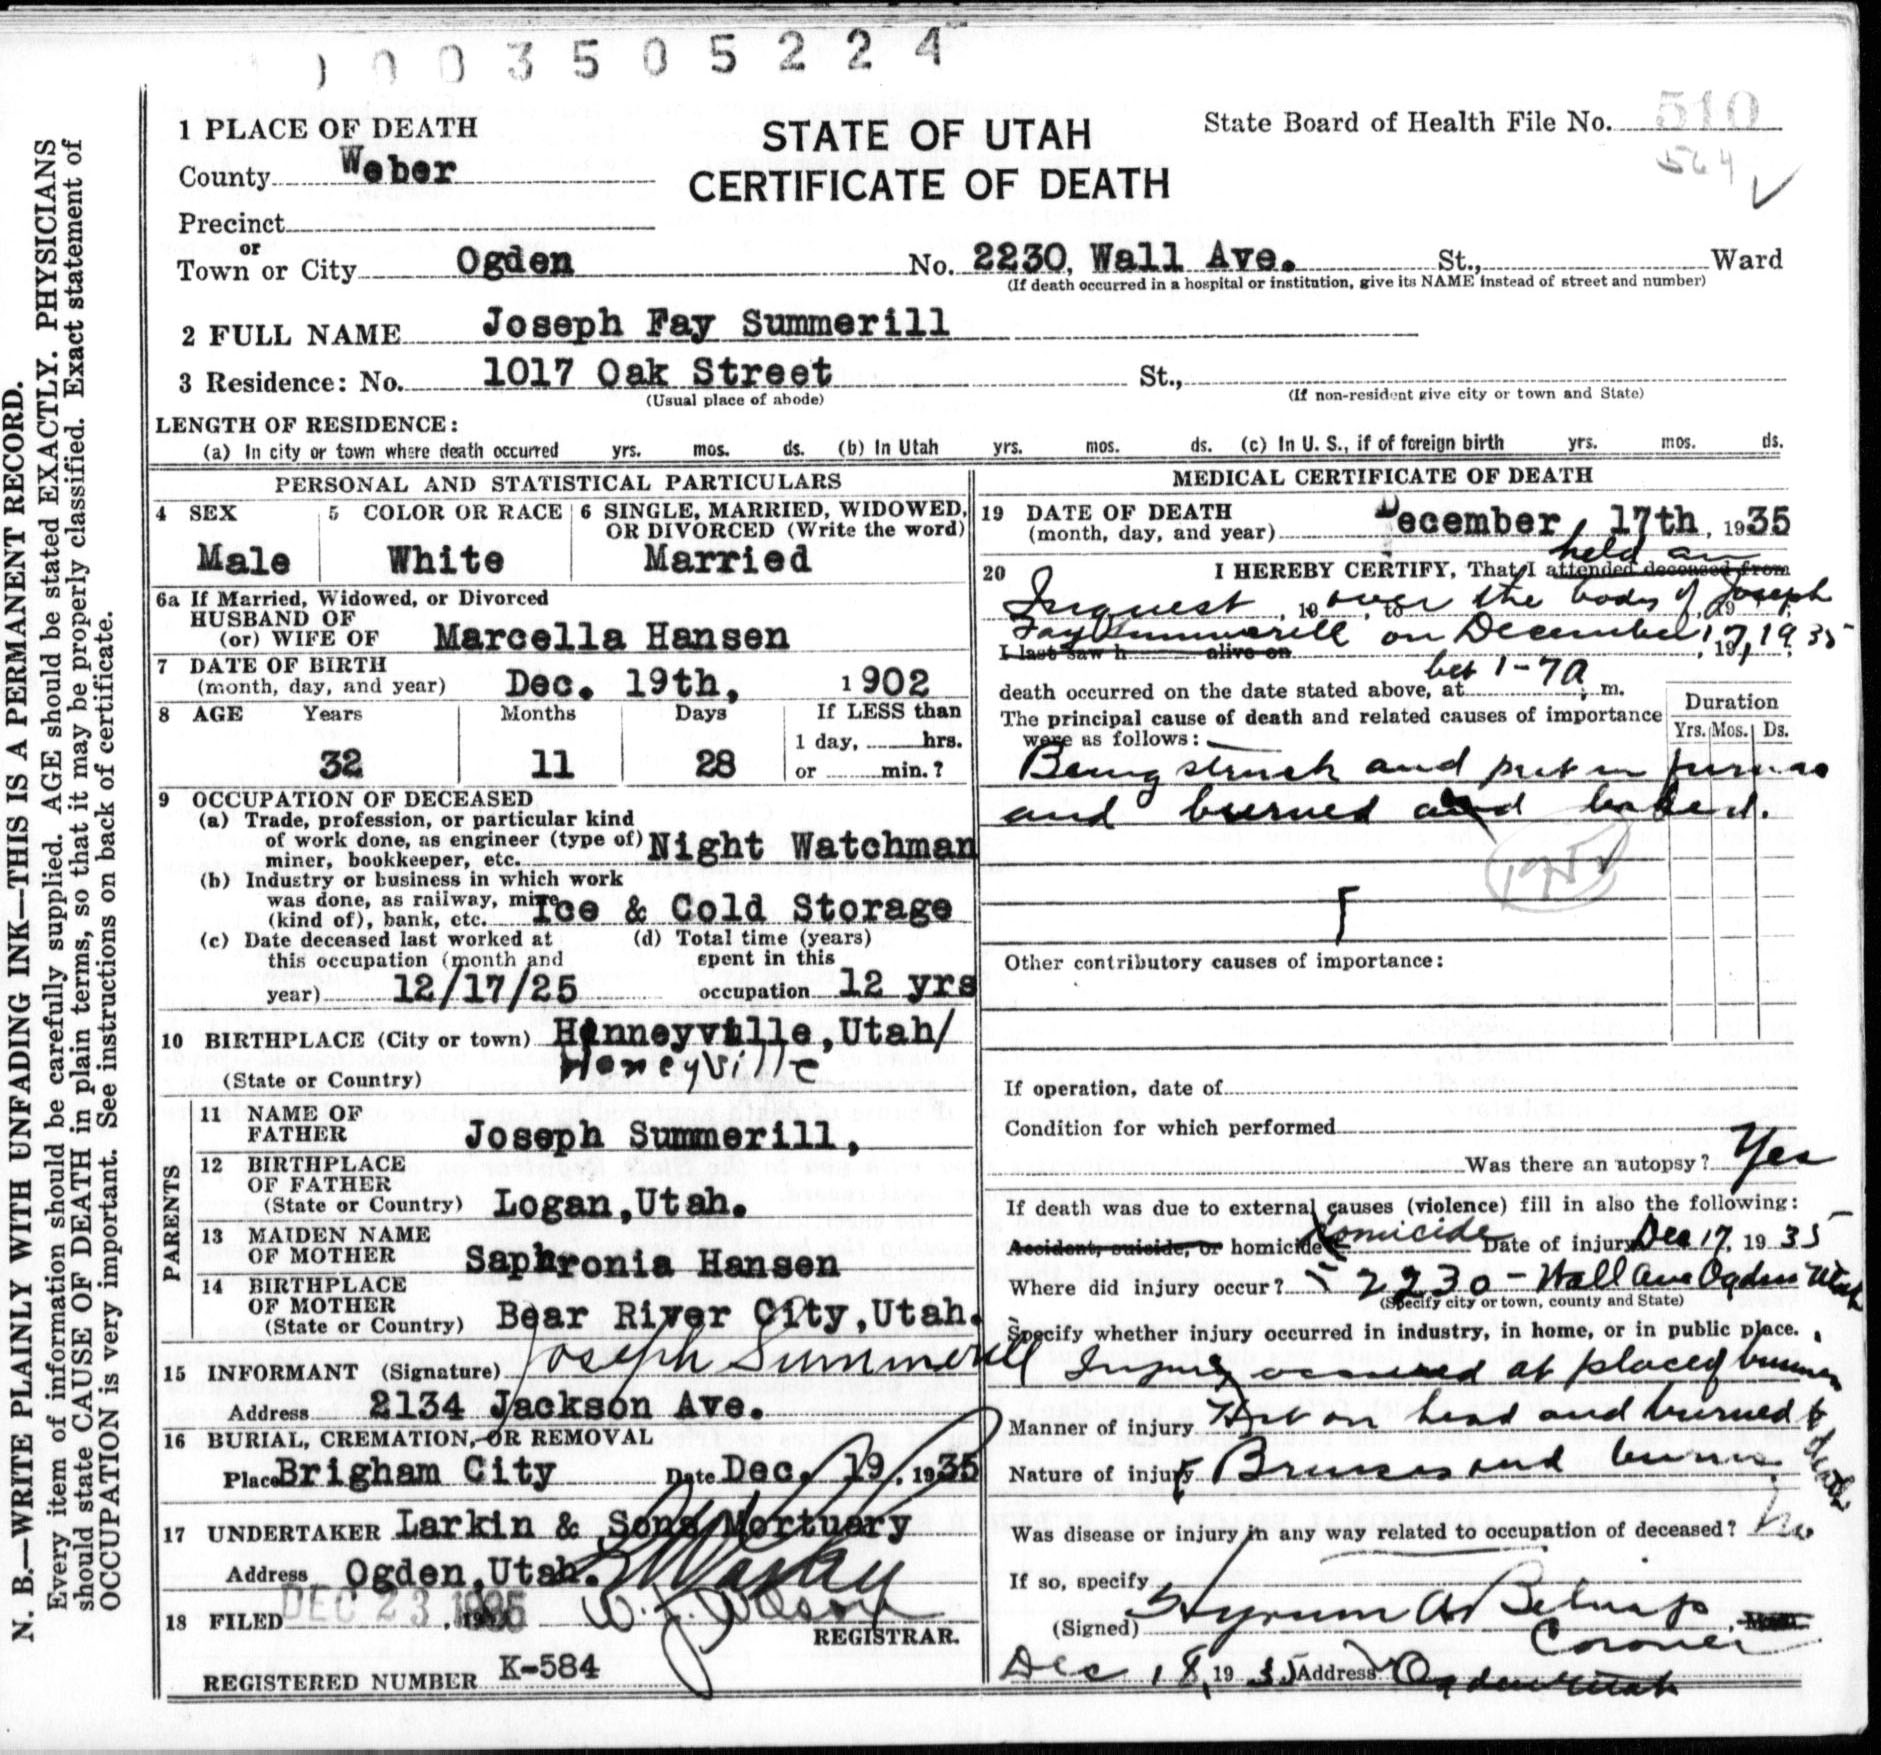 1003505224
1 PLACE OF DEATH
STATE OF UTAH
CERTIFICATE OF DEATH
State Board of Health File No. 510
564
County Weber
Precinct
or
Town or City Ogden No. 2230, Wall Ave. St., Ward
(If death occurred in a hospital or institution, give its NAME instead of street and number)
2 FULL NAME Joseph Fay Summerill
3 Residence: No. 1017 Oak Street St.,
(Usual place of abode) (If non-resident give city or town and State)
LENGTH OF RESIDENCE:
(a) In city or town where death occurred yrs. mos. ds. (b) In Utah yrs. mos. ds. (c) In U. S., if of foreign birth yrs. mos. ds.
PERSONAL AND STATISTICAL PARTICULARS
4 SEX
Male
5 COLOR OR RACE
White
6 SINGLE, MARRIED, WIDOWED,
OR DIVORCED (Write the word)
Married
6a If Married, Widowed, or Divorced
HUSBAND OF
(or) WIFE OF Marcella Hansen
7 DATE OF BIRTH
(month, day, and year) Dec. 19th, 1902
8 AGE Years Months Days If LESS than
1 day, hrs.
32 11 28 or min.?
9 OCCUPATION OF DECEASED
(a) Trade, profession, or particular kind
of work done, as engineer (type of)
miner, bookkeeper, etc. Night Watchman
(b) Industry or business in which work
was done, as railway, mine
(kind of), bank, etc. Ice & Cold Storage
(c) Date deceased last worked at
this occupation (month and
year) 12/17/25
(d) Total time (years)
spent in this
occupation 12 yrs
10 BIRTHPLACE (City or town) Hinneyville, Utah/
Honeyville
(State or Country)
PARENTS
11 NAME OF
FATHER Joseph Summerill,
12 BIRTHPLACE
OF FATHER
(State or Country) Logan, Utah.
13 MAIDEN NAME
OF MOTHER Saphronia Hansen
14 BIRTHPLACE
OF MOTHER
(State or Country) Bear River City, Utah.
15 INFORMANT (Signature) Joseph Summerill
Address 2134 Jackson Ave.
16 BURIAL, CREMATION, OR REMOVAL
Place Brigham City Date Dec. 19, 1935
17 UNDERTAKER Larkin & Sons Mortuary
Address Ogden, Utah.
18 FILED DEC 23 1935
REGISTRAR.
REGISTERED NUMBER K-584
MEDICAL CERTIFICATE OF DEATH
19 DATE OF DEATH
(month, day, and year) December 17th, 1935
held an
20 I HEREBY CERTIFY, That I attended deceased from
Inquest, 19 over, to the body of Joseph 19
Fay Summerill on December 17, 1935
I last saw h alive on , 19
bet 1-7a
death occurred on the date stated above, at m.
The principal cause of death and related causes of importance
were as follows:
Duration
Yrs. Mos. Ds.
Being struck and put in furnace
and burned and baked.
175
Other contributory causes of importance:
If operation, date of
Condition for which performed
Was there an autopsy? Yes
If death was due to external causes (violence) fill in also the following:
Accident, suicide, or homicide Homicide Date of injury Dec 17, 1935
Where did injury occur? 2230 - Wall Ave Ogden Utah
(Specify city or town, county and State)
Specify whether injury occurred in industry, in home, or in public place.
Injury occurred at place of business
Manner of injury Hit on head and burned to death
Nature of injury Bruises and burns
Was disease or injury in any way related to occupation of deceased? No
If so, specify
(Signed) Hyrum A Belnap
Coroner
Dec 18, 1935 Address Ogden Utah
N. B.—WRITE PLAINLY WITH UNFADING INK—THIS IS A PERMANENT RECORD.
Every item of information should be carefully supplied. AGE should be stated EXACTLY. PHYSICIANS
should state CAUSE OF DEATH in plain terms, so that it may be properly classified. Exact statement of
OCCUPATION is very important. See instructions on back of certificate.